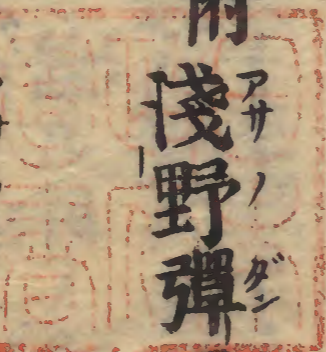 淺野彈
アサノダン